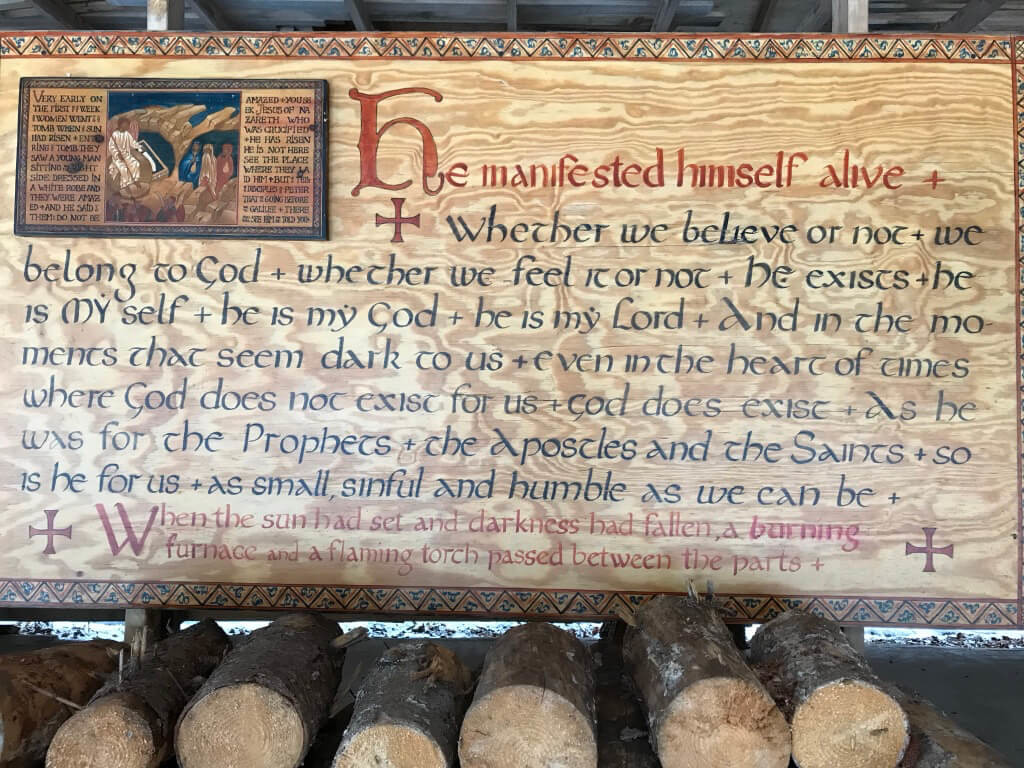 VERY EARLY ON
THE FIRST OF WEEK
WOMEN WENT TO
TOMB WHEN SUN
HAD RISEN + ENTE
RING TOMB THEY
SAW A YOUNG MAN
SITTING RIGHT
SIDE DRESSED IN
A WHITE ROBE AND
THEY WERE AMAZ
ED + AND HE SAID
THEM: DO NOT BE
AMAZED + YOU SE
EK JESUS OF NA
ZARETH WHO
WAS CRUCIFIED
+ HE HAS RISEN
HE IS NOT HERE
SEE THE PLACE
WHERE THEY LA
ID HIM + BUT
DISCIPLES PETER
THAT GOING BEFORE
GALILEE + THERE
SEE HIM TOLD YOU
He manifested himself alive +
Whether we believe or not + we
belong to God + whether we feel it or not + He exists + he
is MY self + he is my God + he is my Lord + And in the mo-
ments that seem dark to us + even in the heart of times
where God does not exist for us + God does exist + As he
was for the Prophets + the Apostles and the Saints + so
is he for us + as small, sinful and humble as we can be +
When the sun had set and darkness had fallen, a burning
furnace and a flaming torch passed between the parts +